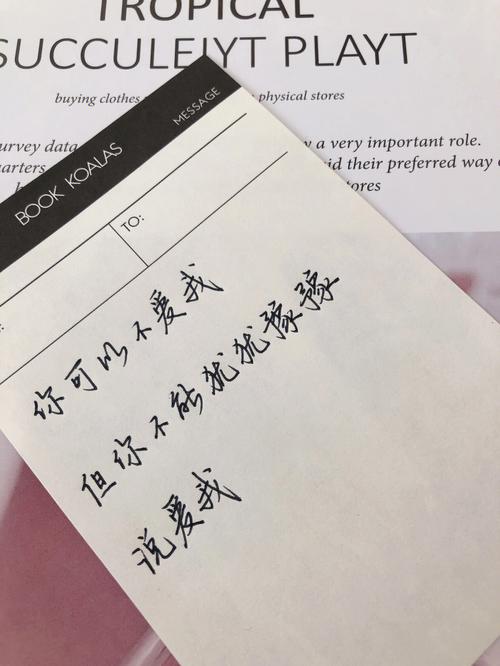 TROPICAL
SUCCULEIYT PLAYT
buying clothes
physical stores
urvey data
a very important role.
their preferred way
BOOK KOALAS
MESSAGE
TO:
你可以不爱我
但你不能犹犹豫豫
说爱我